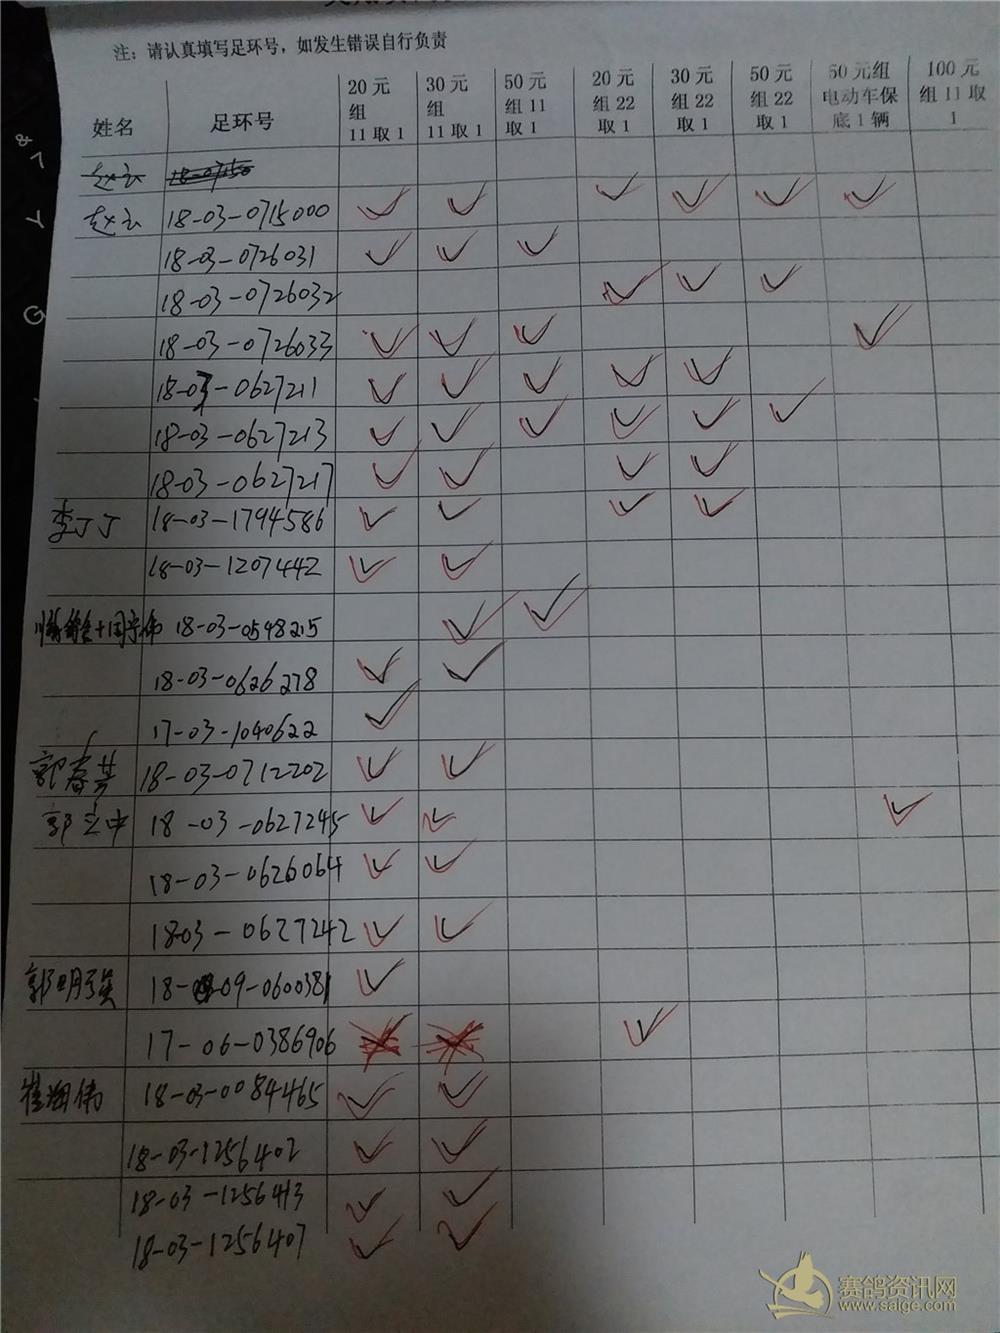 注：请认真填写足环号，如发生错误自行负责
姓名 足环号 20元组11取1 30元组11取1 50元组11取1 20元组22取1 30元组22取1 50元组22取1 50元组电动车保底1辆 100元组11取1
赵云
赵云 18-03-0715000 ✓ ✓ ✓ ✓ ✓ ✓
18-03-0726031 ✓ ✓ ✓
18-03-0726032 ✓ ✓ ✓
18-03-0726033 ✓ ✓ ✓ ✓
18-03-0627211 ✓ ✓ ✓ ✓ ✓
18-03-0627213 ✓ ✓ ✓ ✓ ✓ ✓
18-03-0627217 ✓ ✓ ✓ ✓
李丁丁 18-03-1794586 ✓ ✓ ✓ ✓
18-03-1207442 ✓ ✓
18-03-0548215 ✓ ✓
18-03-0626278 ✓ ✓
17-03-1040622 ✓
郭春芳 18-03-0712202 ✓ ✓
郭立中 18-03-0627245 ✓ ✓ ✓
18-03-0626064 ✓ ✓
1803-0627242 ✓ ✓
郭明强 18-09-0600381 ✓
17-06-0386906 ✓
崔翔伟 18-03-0084465 ✓ ✓
18-03-1256402 ✓ ✓
18-03-1256413 ✓ ✓
18-03-1256407 ✓ ✓
赛鸽资讯网
www.saige.com